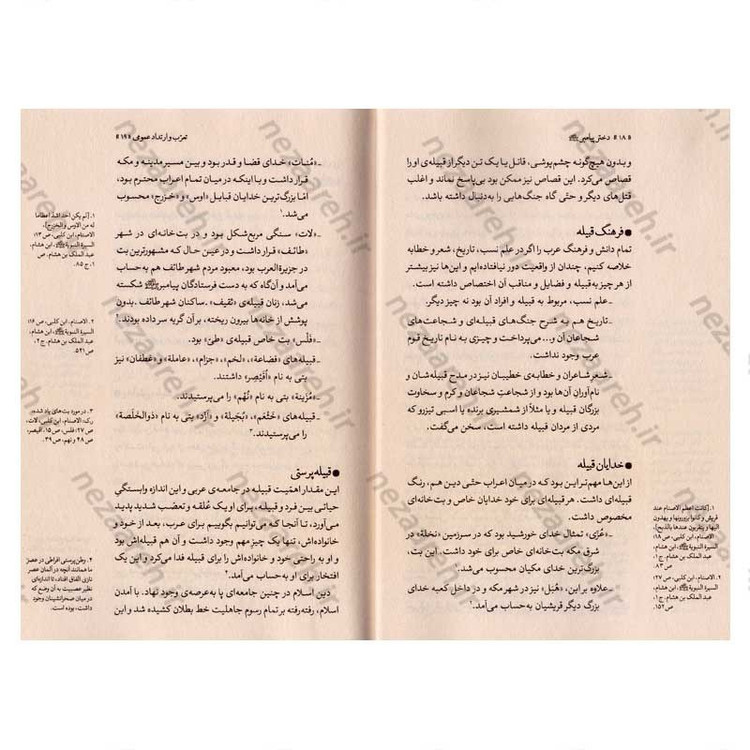 «۱۸» دختر پیامبر ﷺ
و بدون هیچ‌گونه چشم‌پوشی، قاتل یا یک تن دیگر از قبیله‌ی او را
قصاص می‌کرد. این قصاص نیز ممکن بود بی‌پاسخ نماند و اغلب
قتل‌های دیگر و حتّی گاه جنگ‌هایی را به‌دنبال داشته باشد.
● فرهنگ قبیله
تمام دانش و فرهنگ عرب را اگر در علم نسب، تاریخ، شعر و خطابه
خلاصه کنیم، چندان از واقعیت دور نیافتاده‌ایم و این‌ها نیز بیشتر
از هر چیز به قبیله و فضایل و مناقب آن اختصاص داشته است.
ـ علم نسب، مربوط به قبیله و افراد آن بود نه چیز دیگر.
ـ تاریخ هم به شرح جنگ‌های قبیله‌ای و شجاعت‌های
شجاعان آن و... می‌پرداخت و چیزی به نام تاریخ قوم
عرب وجود نداشت.
ـ شعر شاعران و خطابه‌ی خطیبان نیز در مدح قبیله‌شان و
نام‌آوران آن‌ها بود و از شجاعتِ شجاعان و کرم و سخاوت
بزرگان قبیله و یا مثلاً از شمشیری برنده یا اسبی تیزرو که
مردی از مردان قبیله داشته است، سخن می‌گفت.
● خدایان قبیله
از این‌ها مهم‌تر این بود که در میان اعراب حتّی دین هم، رنگ
قبیله‌ای داشت. هر قبیله‌ای برای خود خدایان خاص و بت‌خانه‌ای
مخصوص داشت.
ـ «عُزّی» تمثال خدای خورشید بود که در سرزمین «نخلة» در
شرق مکه بت‌خانه‌ای خاص برای خود داشت. این بت،
بزرگ‌ترین خدای مکیان محسوب می‌شد.۱
ـ علاوه بر این، «هُبَل» نیز در شهر مکه و در داخل کعبه خدای
بزرگ دیگر قریشیان به‌حساب می‌آمد.۲
۱. [کانت اعظم الاصنام عند
قریش و کانوا یزورونها و یهدون
الیها و یتقربون عندها بالذبح].
الاصنام، ابن کلبی، ص ۱۸؛
السیرة النبویة ﷺ، ابن هشام،
عبد الملک بن هشام، ج ۱،
ص ۸۳.
۲. الاصنام، ابن کلبی، ص ۲۷؛
السیرة النبویة ﷺ، ابن هشام،
عبد الملک بن هشام، ج ۱،
ص ۱۵۲.
تعرّب و ارتداد عمومی «۱۹»
ـ «مُنات» خدای قضا و قدر بود و بین مسیر مدینه و مکه
قرار داشت و با اینکه در میان تمام اعراب محترم بود،
امّا بزرگ‌ترین خدایان قبایل «اوس» و «خزرج» محسوب
می‌شد.۱
ـ «لات» سنگی مربع‌شکل بود و در بت‌خانه‌ای در شهر
«طائف» قرار داشت و در عین حال که مشهورترین بت
در جزیرةالعرب بود، معبود مردم شهر طائف هم به‌حساب
می‌آمد و آن‌گاه که به دست فرستادگان پیامبر ﷺ شکسته
می‌شد، زنان قبیله‌ی «ثقیف» ـ ساکنان شهر طائف ـ بدون
پوشش از خانه‌ها بیرون ریخته، بر آن گریه سر داده بودند.۲
ـ «فلْس» بت خاص قبیله‌ی «طیّ» بود.
ـ قبیله‌های «قضاعة»، «لخم»، «جزام»، «عاملة» و «غطفان» نیز
بتی به نام «اُقَیْصِر» داشتند.
ـ «مزینة» بتی به نام «نُهْم» را می‌پرستیدند.
ـ قبیله‌های «خَثْعَم»، «بَجیلة» و «اَزْد» بتی به نام «ذوالخَلَصة»
را می‌پرستیدند.۳
● قبیله‌پرستی
این مقدار اهمیّت قبیله در جامعه‌ی عربی و این اندازه وابستگیِ
حیاتی بین فرد و قبیله، برای او یک عُلقه و تعصّب شدید پدید
می‌آورد، تا آنجا که می‌توانیم بگوییم برای عرب، بعد از خود و
خانواده‌اش، تنها یک چیز مهم وجود داشت و آن هم قبیله‌اش بود
و او به راحتی خود و خانواده‌اش را برای قبیله فدا می‌کرد و این یک
افتخار برای او به حساب می‌آمد.۴
دین اسلام در چنین جامعه‌ای پا به‌عرصه‌ی وجود نهاد. با آمدن
اسلام، رفته‌رفته بر تمام رسوم جاهلیت خط بطلان کشیده شد و این
۱. [لم یکن احد اشدّ اعظاما
له من الاوس و الخزرج].
الاصنام، ابن کلبی، ص ۱۳؛
السیرة النبویة ﷺ، ابن هشام،
عبد الملک بن هشام، ص
۱، ج ۸۵.
۲. الاصنام، ابن کلبی، ص ۱۶؛
السیرة النبویة ﷺ، ابن هشام،
عبد الملک بن هشام، ج ۲،
ص ۵۴۱.
۳. در مورد بت‌های یاد شده،
رک: الاصنام، ابن کلبی، لات،
ص ۲۷؛ فلس، ص ۱۵؛ اقیصر،
ص ۴۸ و نهم، ص ۳۹.
۴. وطن‌پرستی افراطی در عصر
ما همانند آنچه در آلمان عصر
نازی اتفاق افتاد، تا اندازه‌ای
نظیر عصبیت به آن وضع که
در میان صحرانشینان وجود
داشت، بوده است.
nezaareh.ir